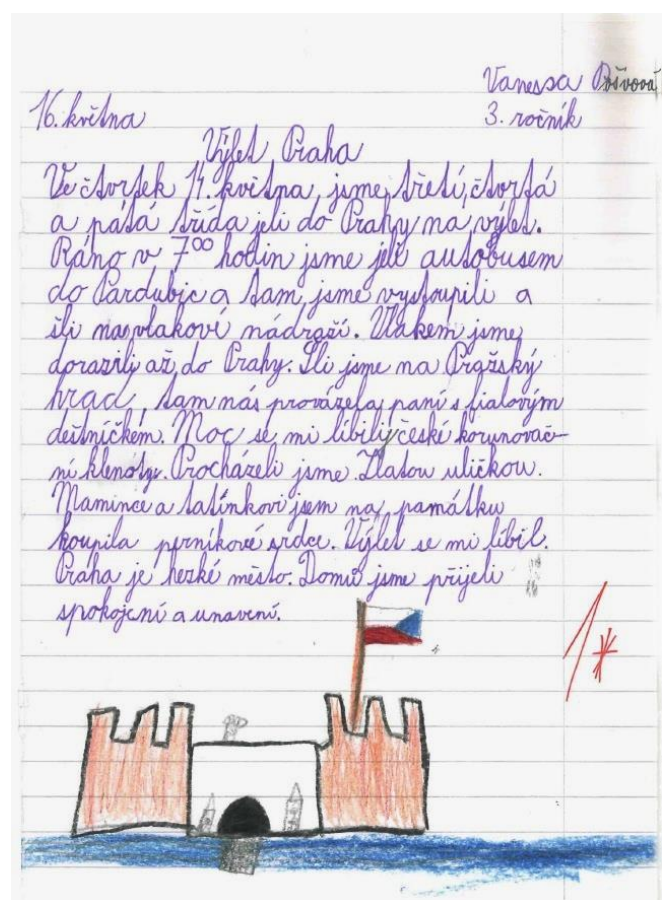 Vanessa Pošvová
16. května
3. ročník
Výlet Praha
Ve čtvrtek 14. května, jsme třetí, čtvrtá
a pátá třída jeli do Prahy na výlet.
Ráno v 7⁰⁰ hodin jsme jeli autobusem
do Pardubic a tam jsme vystoupili a
šli na vlakové nádraží. Vlakem jsme
dorazili až do Prahy. Šli jsme na Pražský
hrad, tam nás provázela paní s fialovým
deštníčkem. Moc se mi líbily české korunovač-
ní klenoty. Procházeli jsme Zlatou uličkou.
Mamince a tatínkovi jsem na památku
koupila perníkové srdce. Výlet se mi líbil.
Praha je hezké město. Domů jsme přijeli
spokojení a unavení.
1*